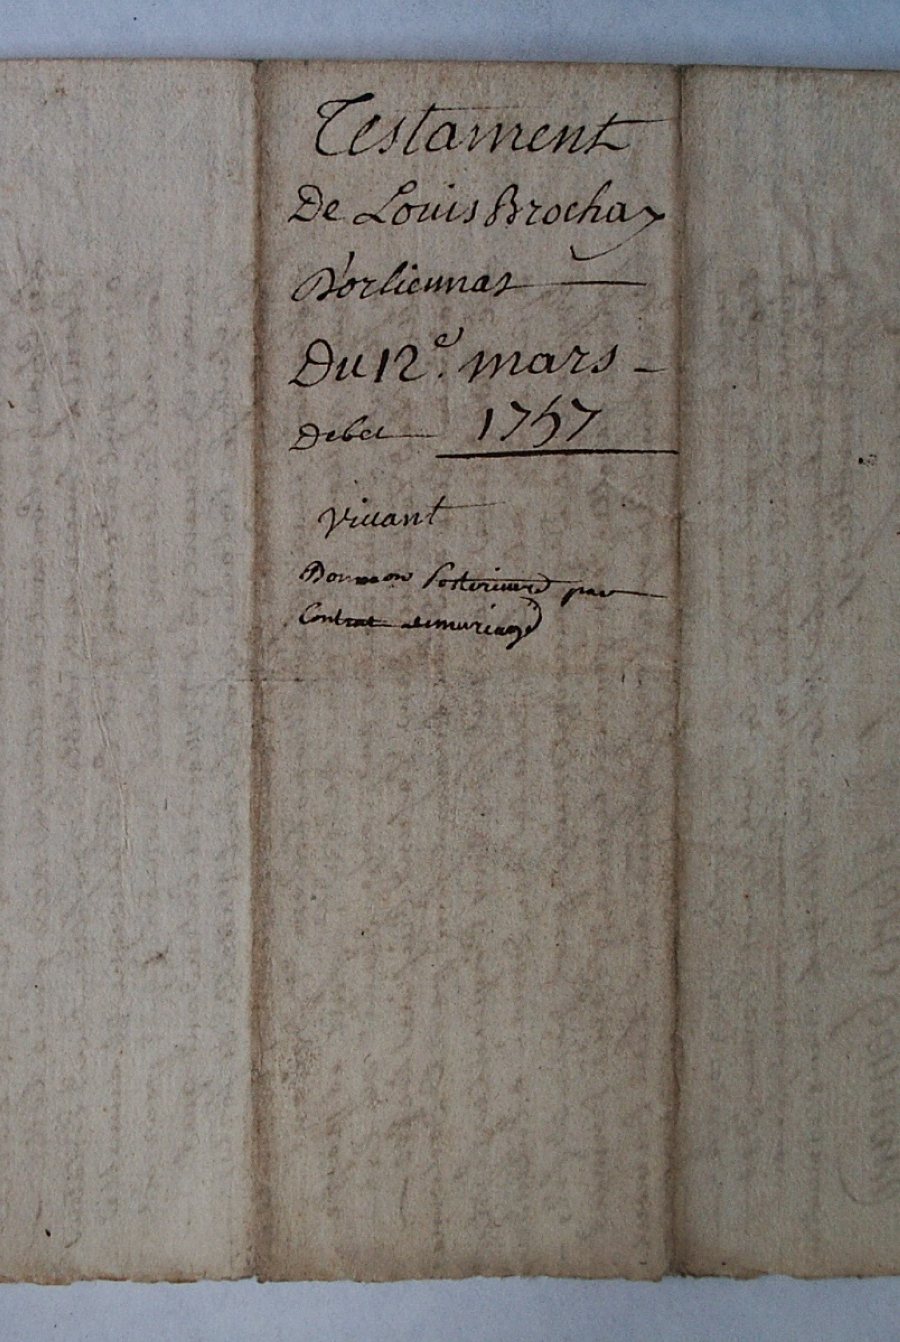 Testament
De Louis Brochay
D'orliennas
Du 12e. mars
Debet 1757
vivant
Donnaon Posterieure par
Contrat de mariage